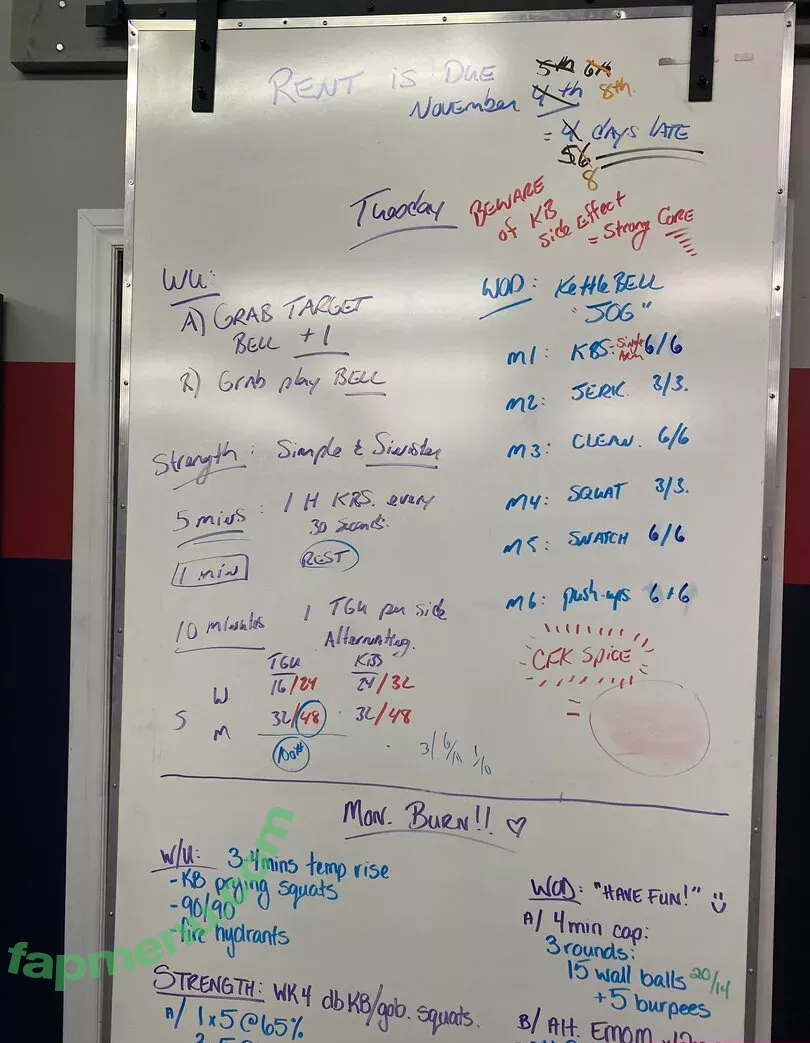 RENT is DUE
November
5th 6th
4th 8th.
= 4 days LATE
56
8
Tuesday
BEWARE
of KB
side Effect
= Strong CORE
WU:
A) GRAB TARGET
BELL +1
B) Grab play BELL
Strength: Simple & Sinister
5 mins : 1 H KBS. every
30 Seconds.
1 min REST
10 minutes 1 TGU per side
Alternating.
TGU KBS
W 16/24 24/32
S
M 32/48 32/48
100#
3/ 6/10 1/10
WOD: KettleBELL
"JOG"
M1: KBS: Single Arm 6/6
M2: JERK. 3/3.
M3: CLEAN. 6/6
M4: SQUAT 3/3.
M5: SNATCH 6/6
M6: push-ups 6+6
CFK SPICE
=
Mon. BURN!! ♡
W/U: 3-4mins temp rise
-KB prying squats
-90/90
-fire hydrants
STRENGTH: WK4 dbKB/gob. squats.
A/ 1x5@65%
WOD: "HAVE FUN!" :)
A/ 4min cap:
3 rounds:
15 wall balls 20/14
+5 burpees
B/ Alt. EMOM x12m